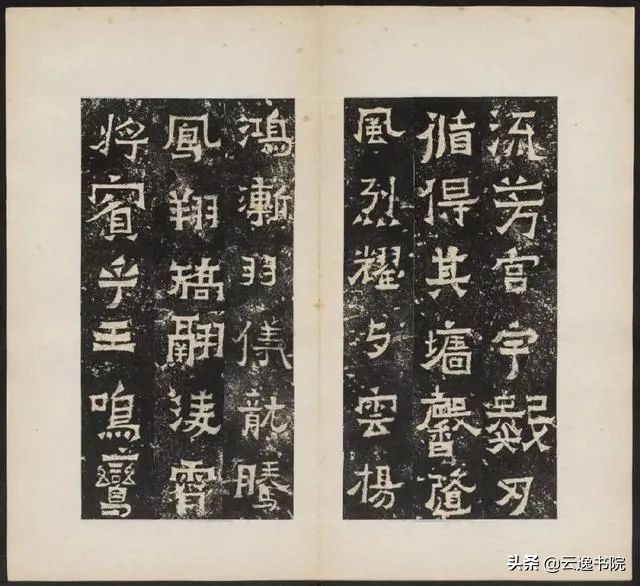 流芳宮宇數刃
循得其墻馨隆
風烈耀与雲揚
鴻漸羽儀龍騰
鳳翔矯翮淩霄
將賓乎王鳴鸞
头条 @云逸书院